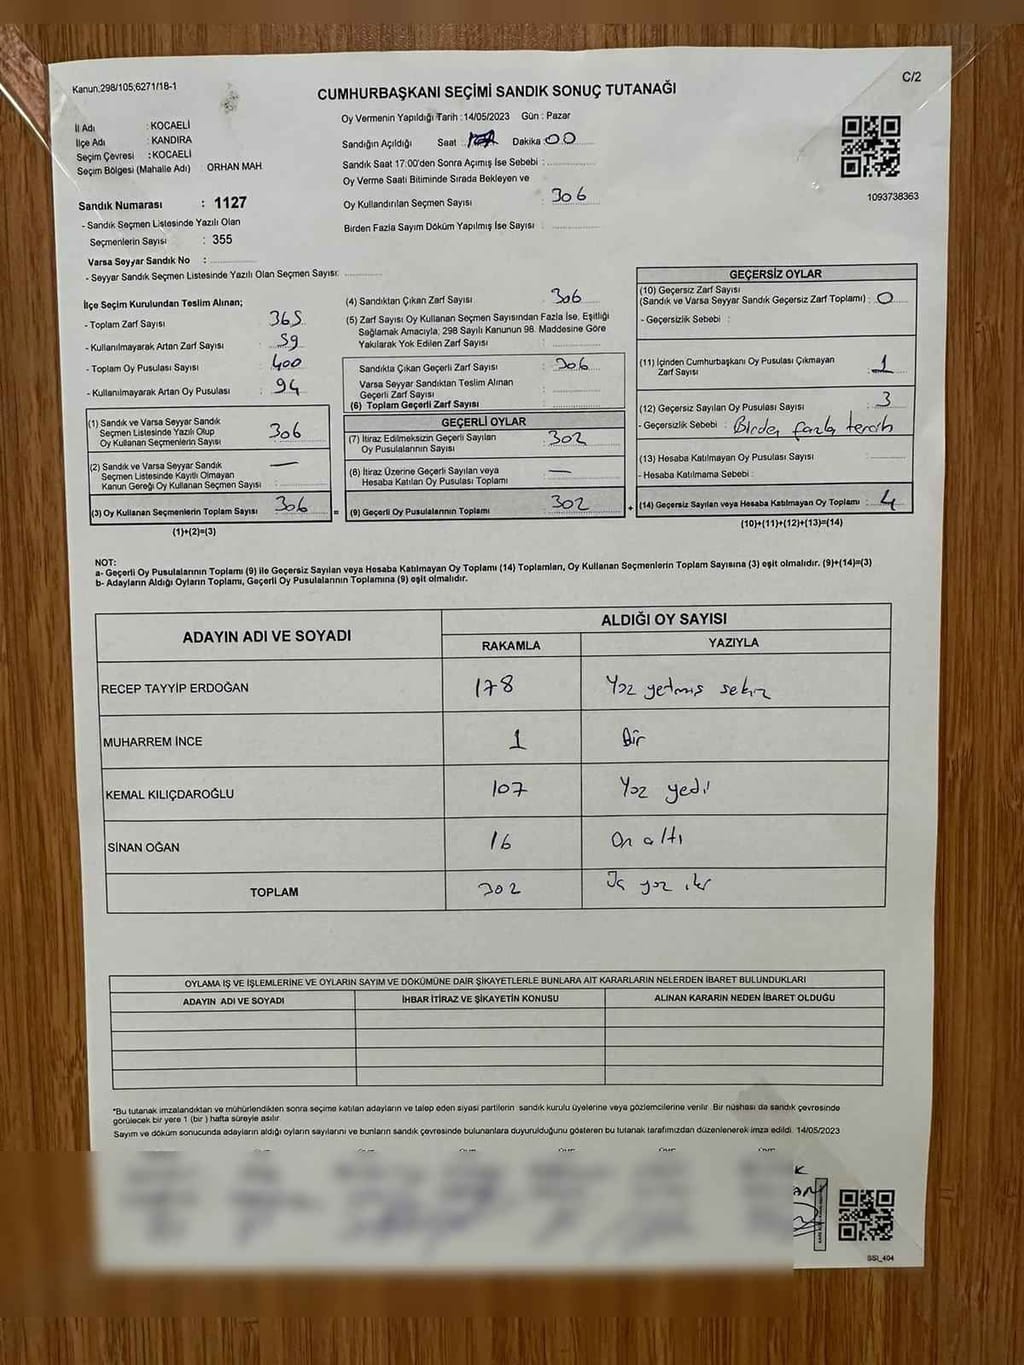 Kanun;298/105;6271/18-1
C/2
CUMHURBAŞKANI SEÇİMİ SANDIK SONUÇ TUTANAĞI
İl Adı : KOCAELİ
İlçe Adı : KANDIRA
Seçim Çevresi : KOCAELİ
Seçim Bölgesi (Mahalle Adı) ORHAN MAH.
Sandık Numarası : 1127
- Sandık Seçmen Listesinde Yazılı Olan
Seçmenlerin Sayısı : 355
Varsa Seyyar Sandık No :
- Seyyar Sandık Seçmen Listesinde Yazılı Olan Seçmen Sayısı:
Oy Vermenin Yapıldığı Tarih :14/05/2023 Gün : Pazar
Sandığın Açıldığı Saat : Dakika : 00
Sandık Saat 17:00'den Sonra Açımış İse Sebebi :
Oy Verme Saati Bitiminde Sırada Bekleyen ve
Oy Kullandırılan Seçmen Sayısı : 306
Birden Fazla Sayım Döküm Yapılmış İse Sayısı :
1093738363
İlçe Seçim Kurulundan Teslim Alınan;
- Toplam Zarf Sayısı : 365
- Kullanılmayarak Artan Zarf Sayısı : 59
- Toplam Oy Pusulası Sayısı : 400
- Kullanılmayarak Artan Oy Pusulası : 94
(1) Sandık ve Varsa Seyyar Sandık
Seçmen Listesinde Yazılı Olup
Oy Kullanan Seçmenlerin Sayısı : 306
(2) Sandık ve Varsa Seyyar Sandık
Seçmen Listesinde Kayıtlı Olmayan
Kanun Gereği Oy Kullanan Seçmen Sayısı : —
(3) Oy Kullanan Seçmenlerin Toplam Sayısı : 306
(1)+(2)=(3)
(4) Sandıktan Çıkan Zarf Sayısı : 306
(5) Zarf Sayısı Oy Kullanan Seçmen Sayısından Fazla İse, Eşitliği
Sağlamak Amacıyla, 298 Sayılı Kanunun 98. Maddesine Göre
Yakılarak Yok Edilen Zarf Sayısı :
Sandıkla Çıkan Geçerli Zarf Sayısı : 306
Varsa Seyyar Sandıktan Teslim Alınan
Geçerli Zarf Sayısı :
(6) Toplam Geçerli Zarf Sayısı :
GEÇERLİ OYLAR
(7) İtiraz Edilmeksizin Geçerli Sayılan
Oy Pusulasının Sayısı : 302
(8) İtiraz Üzerine Geçerli Sayılan veya
Hesaba Katılan Oy Pusulası Toplamı : —
(9) Geçerli Oy Pusulalarının Toplamı : 302
GEÇERSİZ OYLAR
(10) Geçersiz Zarf Sayısı
(Sandık ve Varsa Seyyar Sandık Geçersiz Zarf Toplamı) : 0
- Geçersizlik Sebebi :
(11) İçinden Cumhurbaşkanı Oy Pusulası Çıkmayan
Zarf Sayısı : 1
(12) Geçersiz Sayılan Oy Pusulası Sayısı : 3
- Geçersizlik Sebebi : Birden fazla tercih
(13) Hesaba Katılmayan Oy Pusulası Sayısı
- Hesaba Katılmama Sebebi :
(14) Geçersiz Sayılan veya Hesaba Katılmayan Oy Toplamı : 4
(10)+(11)+(12)+(13)=(14)
NOT:
a- Geçerli Oy Pusulalarının Toplamı (9) ile Geçersiz Sayılan veya Hesaba Katılmayan Oy Toplamı (14) Toplamları, Oy Kullanan Seçmenlerin Toplam Sayısına (3) eşit olmalıdır. (9)+(14)=(3)
b- Adayların Aldığı Oyların Toplamı, Geçerli Oy Pusulalarının Toplamına (9) eşit olmalıdır.
ADAYIN ADI VE SOYADI ALDIĞI OY SAYISI
RAKAMLA YAZIYLA
RECEP TAYYİP ERDOĞAN 178 Yüz yetmiş sekiz
MUHARREM İNCE 1 Bir
KEMAL KILIÇDAROĞLU 107 Yüz yedi
SİNAN OĞAN 16 On altı
TOPLAM 302 Üç yüz iki
OYLAMA İŞ VE İŞLEMLERİNE VE OYLARIN SAYIM VE DÖKÜMÜNE DAİR ŞİKAYETLERLE BUNLARA AİT KARARLARIN NELERDEN İBARET BULUNDUKLARI
ADAYIN ADI VE SOYADI İHBAR İTİRAZ VE ŞİKAYETİN KONUSU ALINAN KARARIN NEDEN İBARET OLDUĞU
*Bu tutanak imzalandıktan ve mühürlendikten sonra seçime katılan adayların ve talep eden siyasi partilerin sandık kurulu üyelerine veya gözlemcilerine verilir. Bir nüshası da sandık çevresinde
görülecek bir yere 1 (bir) hafta süreyle asılır.
Sayım ve döküm sonucunda adayların aldığı oyların sayılarını ve bunların sandık çevresinde bulunanlara duyurulduğunu gösteren bu tutanak tarafımızdan düzenlenerek imza edildi. 14/05/2023
SSI_404